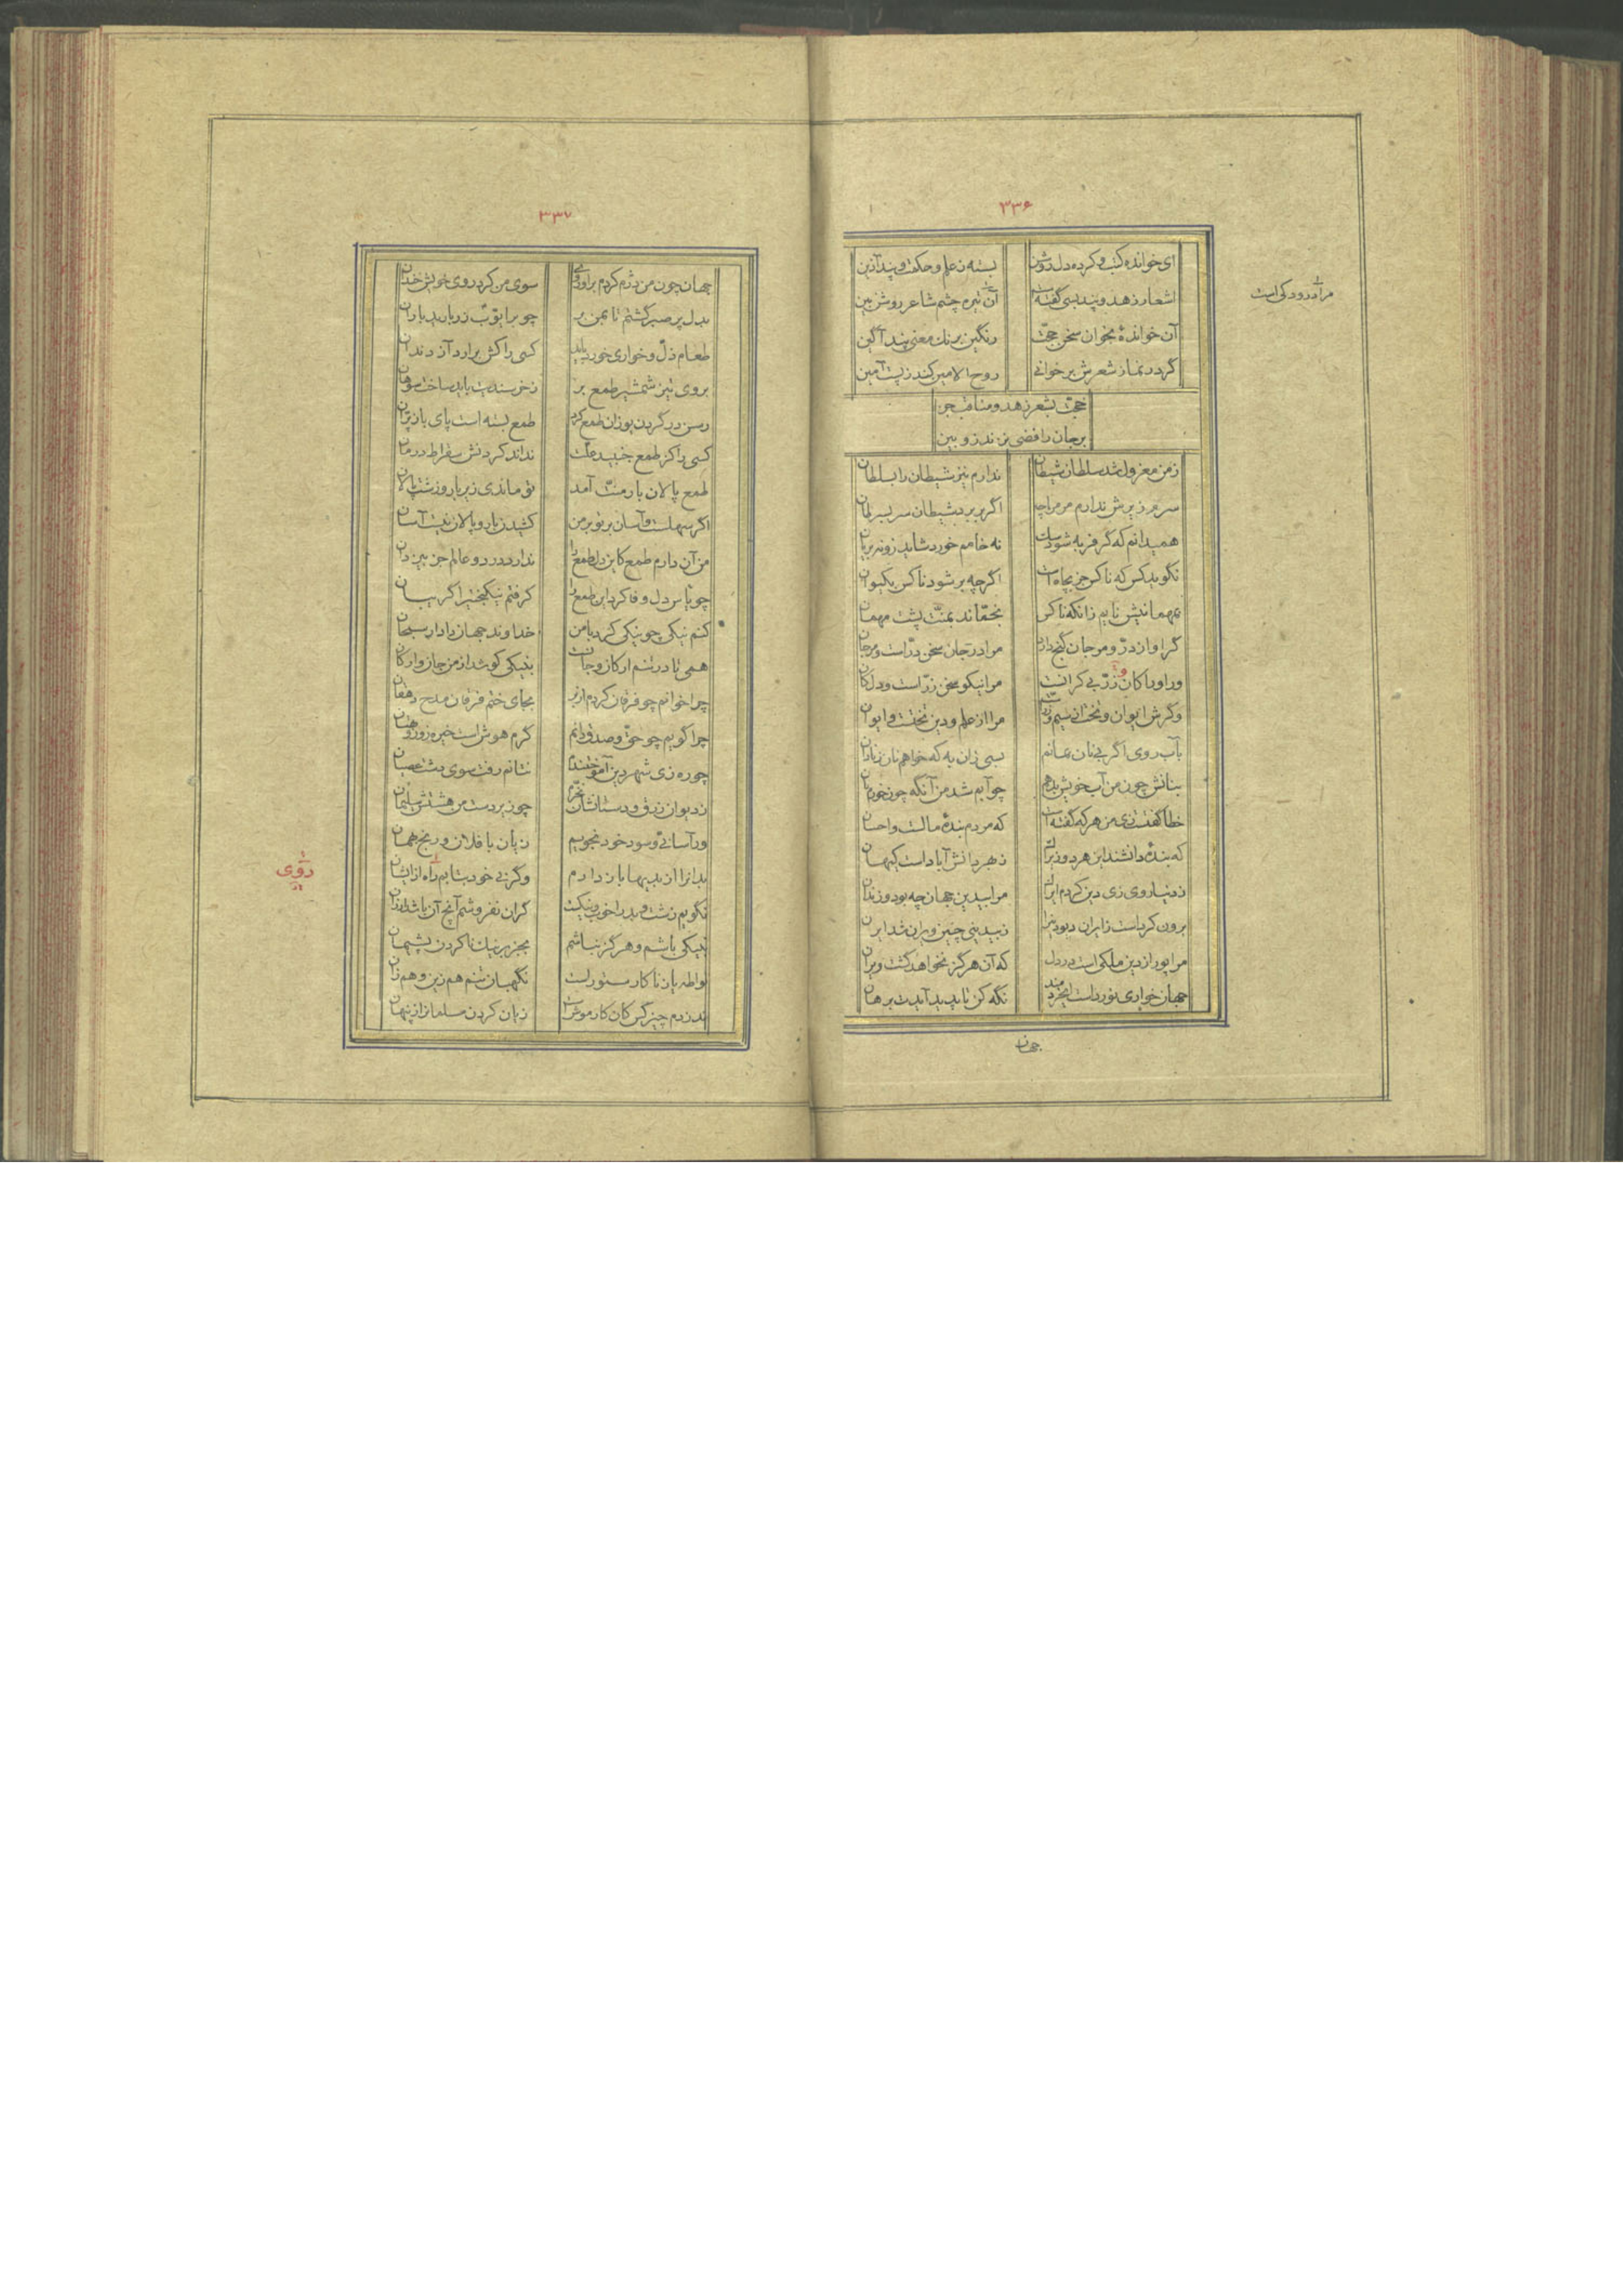 ۳۳۶
ای خوانده کتب و کرده دل روشن بسته ز علم و حکمت و پند آذین
اشعار زهد و پند بسی گفته است آن تیره چشم شاعر روشن بین
مراد رودکی است
آن خواندهٔ بخوان سخن حجّت رنگین برنك معنی پند آگین
گردد نماز شعرش برخوانی روح الامین کند ز پست آمین
حجّت بشعر زهد و مناقب جز
بر جان رافضی نزند زوبین
ز من معزول شد سلطان شیطان ندارم نیز شیطان را بسلطان
سرم زیرش ندارم مر مرا چه اگر بر برد شیطان سر بسرطان
همیدانم که گر فربه شود سك نه خامم خورد شاید زو نه بریان
نگوید کس که ناکس جز بچاه است اگرچه بر شود ناکس بکیوان
بمهمانیش نایم زانکه ناکس بخمّاند بمنّت پشت مهمان
گر او از درّ و مرجان گنج دارد مرا در جان سخن درّ است و مرجان
ور او را کان و زرّ بی کرانست مرا نیکو سخن زرّ است و دل کان
وگرش ایوان و تخت از سیم و زرّست مرا از علم و دین تخت و ایوان
بآب روی اگر بی نان بمانم بسی زان به که خواهم نان ز نادان
بنانش چون من آب خویش بدهم چو آبم شد من آنگه چون خورم نان
خطا گفت زی من هر که گفته است که مردم بندهٔ مالست و احسان
که بندهٔ دانشند این هر دو زیراك ز بهر دانش آباد است کیهان
ز دنیا روی زی دین کردم ایراك مرا بیدین جهان چه بود و زندان
برون کرداست ز ایران دیو دین را ز بیدینی چنین ویران شد ایران
مرا پور از دین ملکی است در دل که آن هرگز نخواهد گشت ویران
جهان خواری نورداست ای خردمند نگه کن تا پدید آیدت برهان
جهان
۳۳۷
جهان چون من دژم کردم برو روی سوی من کرد روی خویش خندان
بدل پر صبر گشتم تا بمن بر چو بر ایوّب زر بارید باران
طعام ذلّ و خواری خورد باید کسی را کش برارد آز دندان
بروی تیز شمشیر طمع بر ز خرسندیت باید ساخت سوهان
رسن در گردن یوزان طمع کرد طمع بسته است پای باز پرّان
کسی را کز طمع جنبید علّت نداند کردنش سقراط درمان
طمع پالان بار منّت آمد تو ماندی زیر بار و زشت پالان
اگر سهلست و آسان بر تو بر من کشیدن بار و پالان نیست آسان
من آن دارم طمع کاین دل طمع را ندارد در دو عالم جز بیزدان
چو یاس دل وفا کرد این طمع را گرفتم نیکبختیرا گریبان
کنم نیکی چو نیکی کرد با من خداوند جهان دادار سبحان
همی تا در تنم ارکان و جانست بنیکی کوشد از من جان و ارکان
چرا خوانم چو فرقان کردم از بر بجای ختم فرقان مدح دهقان
چرا گویم چو حقّ و صدق دانم گرم هوش است خیره زور و بهتان
چو ره زی شهر دین آموختندم نتانم رفت سوی دشت عصیان
ز دیوان زرق و دستانشان نخرّم چو زیر دست من هشتش سلیمان
ور آسانی و سود خود نجویم زیان با فلان و رنج بهمان
بدانرا از بدیها باز دارم وگر نی خود بتابم راه از ایشان
رؤی
نگویم زشت و بد را خوب و نیکست گران نفروشم آنچ آن باشد ارزان
بنیکی باشم و هرگز نباشم بجز بر نیك ناکردن پشیمان
لواطه یا زنا کار ستور است نگهبان تنم هم زین و هم زان
ندزدم چیز کس کان کار موش است زیان کردن مسلمانرا ز پنهان